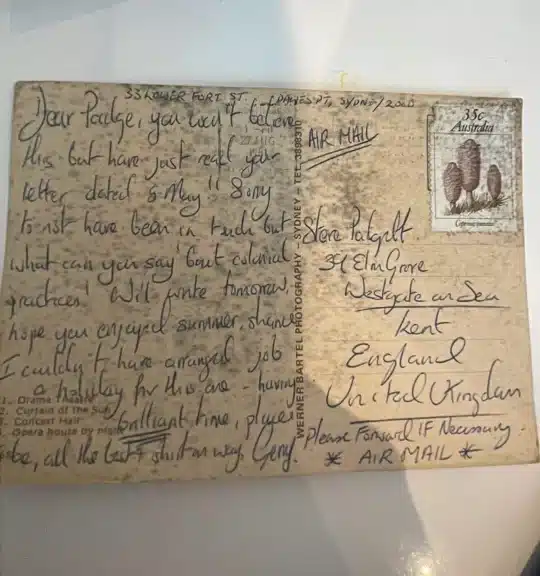 33 LOWER FORT ST. DAWES PT, SYDNEY 2000
Dear Padge, you won't believe
this but have just rec'd your
letter dated 5 May!! Sorry
to not have been in touch but
what can you say 'bout colonial
practices! Will write tomorrow,
hope you enjoyed summer, shame
I couldn't have arranged job
a holiday for this one - having
brilliant time, player
be, all the best & shit on way, Gerry.
1. Drama Theatre
2. Curtain of the Sun
3. Concert Hall
4. Opera House by night
WERNER BARTEL PHOTOGRAPHY - SYDNEY - TEL. 3898310
AIR MAIL
35c
Australia
Coprinus comatus
Steve Padgett
39 Elm Grove
Westgate on Sea
Kent
England
United Kingdom
Please Forward IF Necessary.
* AIR MAIL *